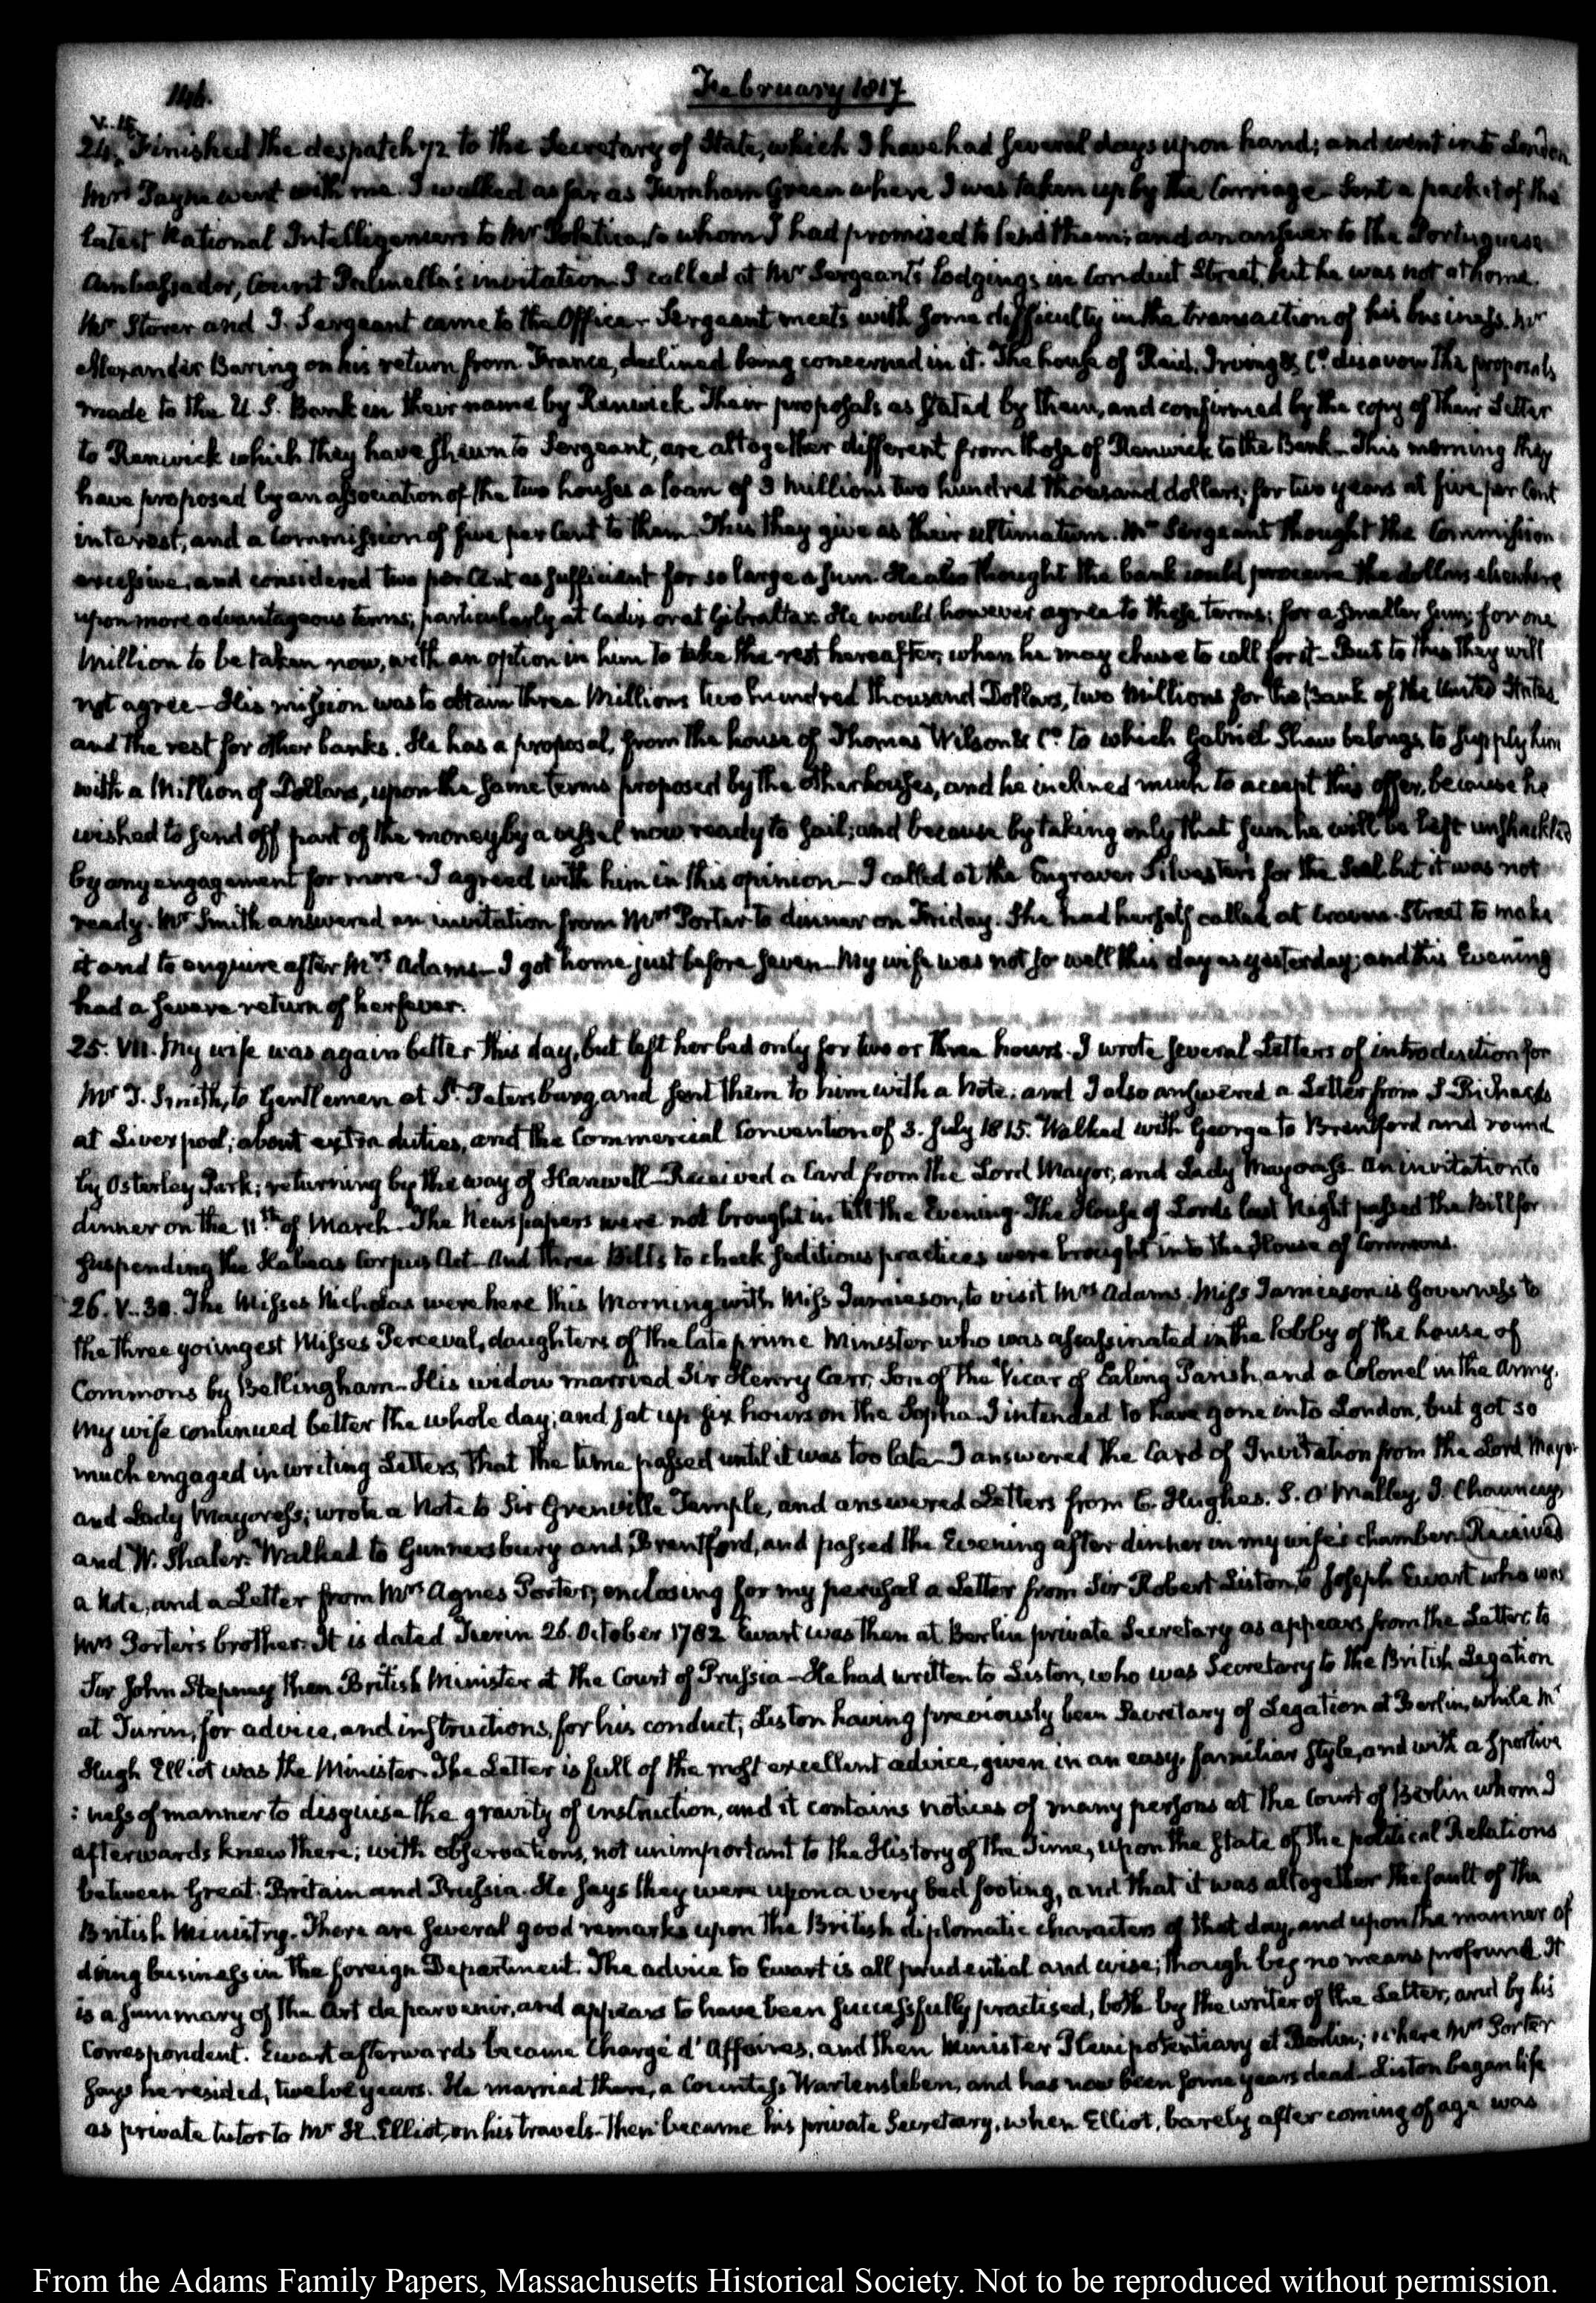 146.
February 1817
V. 15.
24. Finished the despatch 72 to the Secretary of State, which I have had several days upon hand; and went into London.
Mrs Payne went with me. I walked as far as Turnham Green where I was taken up by the Carriage. Sent a packet of the
latest National Intelligencers to Mr Poletica, to whom I had promised to lend them; and an answer to the Portuguese
Ambassador, Count Palmella's invitation. I called at Mr Sergeant's Lodgings in Conduit Street, but he was not at home.
Mr Storer and J. Sergeant came to the Office. Sergeant meets with some difficulty in the transaction of his business. Mr
Alexander Baring on his return from France, declined being concerned in it. The house of Reid, Irving & Co. disavow the proposals
made to the U.S. Bank in their name by Renwick. Their proposals as stated by them, and confirmed by the copy of their Letter
to Renwick which they have shewn to Sergeant, are altogether different from those of Renwick to the Bank—This morning they
have proposed by an association of the two houses a loan of 3 millions two hundred thousand dollars; for two years at five per Cent
interest, and a Commission of five per Cent to them. This they give as their ultimatum. Mr Sergeant thought the Commission
excessive, and considered two per Cent as sufficient for so large a sum. He also thought the bank could procure the dollars elsewhere
upon more advantageous terms; particularly at Cadiz or at Gibraltar. He would however agree to these terms; for a smaller sum; for one
Million to be taken now, with an option in him to take the rest hereafter, when he may chuse to call for it—But to this they will
not agree—His mission was to obtain three Millions two hundred thousand Dollars, two Millions for the Bank of the United States,
and the rest for other banks. He has a proposal, from the house of Thomas Wilson & Co. to which Gabriel Shaw belongs, to supply him
with a Million of Dollars, upon the same terms proposed by the other houses, and he inclined much to accept this offer, because he
wished to send off part of the money by a vessel now ready to sail; and because by taking only that sum he will be left unshackled
by any engagement for more. I agreed with him in this opinion—I called at the Engraver Silvester's for the Seal but it was not
ready. Mr Smith answered an invitation from Mrs Porter to dinner on Friday. She had herself called at Craven Street to make
it and to enquire after Mrs Adams—I got home just before seven—My wife was not so well this day as yesterday; and this Evening
had a severe return of her fever.
25. VII. My wife was again better this day, but left her bed only for two or three hours. I wrote several Letters of introduction for
Mr J. Smith, to Gentlemen at St Petersburg, and sent them to him with a Note; and I also answered a Letter from S Richards
at Liverpool; about extra duties, and the Commercial Convention of 3. July 1815. Walked with George to Brentford and round
by Osterley Park; returning by the way of Hanwell—Received a Card from the Lord Mayor, and Lady Mayoress. An invitation to
dinner on the 11th of March—The Newspapers were not brought in till the Evening. The House of Lords last Night passed the Bill for
suspending the Habeas Corpus Act—And three Bills to check seditious practices were brought into the House of Commons.
26. V. 30. The Misses Nicholas were here this Morning with Miss Jamieson, to visit Mrs Adams. Miss Jamieson is Governess to
the three youngest Misses Perceval, daughters of the late prime Minister who was assassinated in the lobby of the house of
Commons by Bellingham—His widow married Sir Henry Carr, Son of the Vicar of Ealing Parish, and a Colonel in the Army.
My wife continued better the whole day; and sat up six hours on the Sopha. I intended to have gone into London, but got so
much engaged in writing Letters, that the time passed until it was too late—I answered the Card of Invitation from the Lord Mayor
and Lady Mayoress; wrote a Note to Sir Grenville Temple, and answered Letters from C. Hughes. S. O'Malley, I. Chauncey,
and W. Shaler. Walked to Gunnersbury and Brentford, and passed the Evening after dinner in my wife's chamber. Received
a Note, and a Letter from Mrs Agnes Porter, enclosing for my perusal a Letter from Sir Robert Liston, to Joseph Ewart who was
Mrs Porter's brother. It is dated Turin 26. October 1782 Ewart was then at Berlin private Secretary as appears from the Letter to
Sir John Stepney then British Minister at the Court of Prussia—He had written to Liston, who was Secretary to the British Legation
at Turin, for advice, and instructions, for his conduct; Liston having previously been Secretary of Legation at Berlin, while Mr
Hugh Elliot was the Minister. The Letter is full of the most excellent advice, given in an easy, familiar style, and with a sportive
:ness of manner to disguise the gravity of instruction, and it contains notices of many persons at the Court of Berlin whom I
afterwards knew there; with observations, not unimportant to the History of the Time, upon the state of the political Relations
between Great-Britain and Prussia. He says they were upon a very bad footing, and that it was altogether the fault of the
British Ministry. There are several good remarks upon the British diplomatic characters of that day, and upon the manner of
doing business in the foreign Department. The advice to Ewart is all prudential and wise; though by no means profound. It
is a summary of the Art de parvenir, and appears to have been successfully practised, both by the writer of the Letter, and by his
Correspondent. Ewart afterwards became Chargé d'Affaires, and then Minister Plenipotentiary at Berlin; where Mrs Porter
says he resided, twelve years. He married there, a Countess Wartensleben, and has now been some years dead—Liston began life
as private tutor to Mr H. Elliot, on his travels—then became his private Secretary, when Elliot, barely after coming of age was
From the Adams Family Papers, Massachusetts Historical Society. Not to be reproduced without permission.